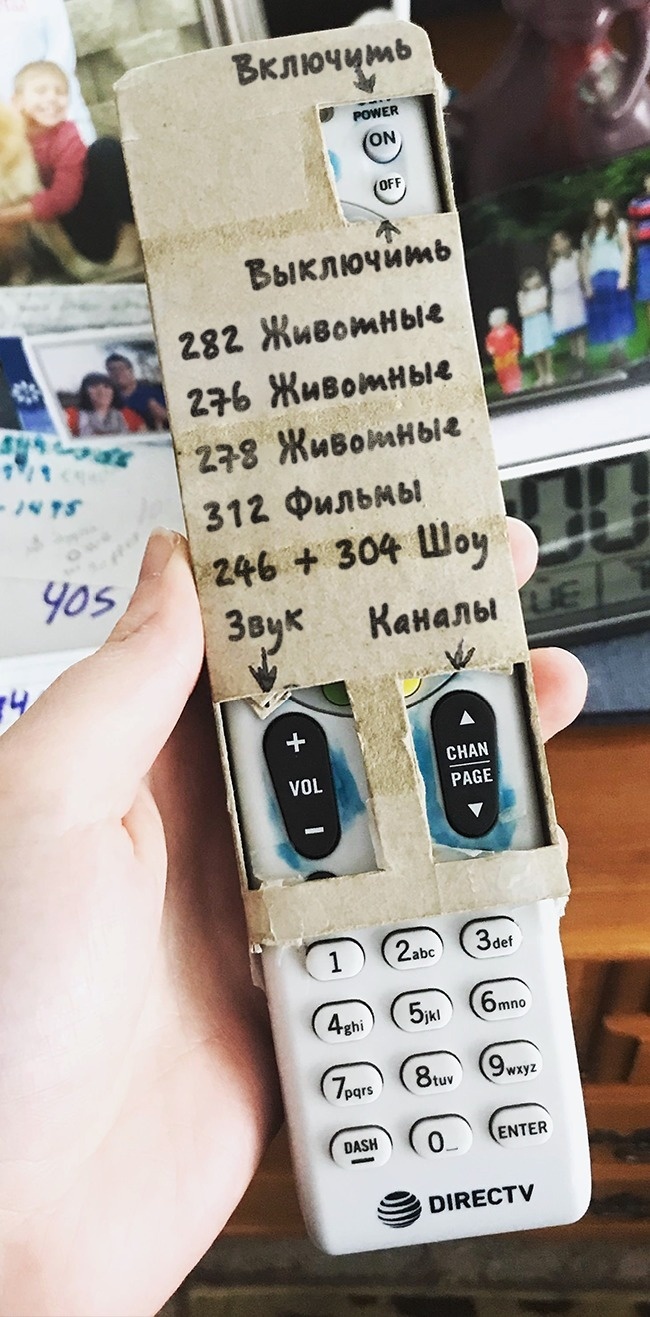 Включить
POWER
ON
OFF
Выключить
282 Животные
276 Животные
278 Животные
312 Фильмы
246 + 304 Шоу
Звук Каналы
+
VOL
−
CHAN
PAGE
1 2abc 3def
4ghi 5jkl 6mno
7pqrs 8tuv 9wxyz
DASH 0_ ENTER
DIRECTV
405